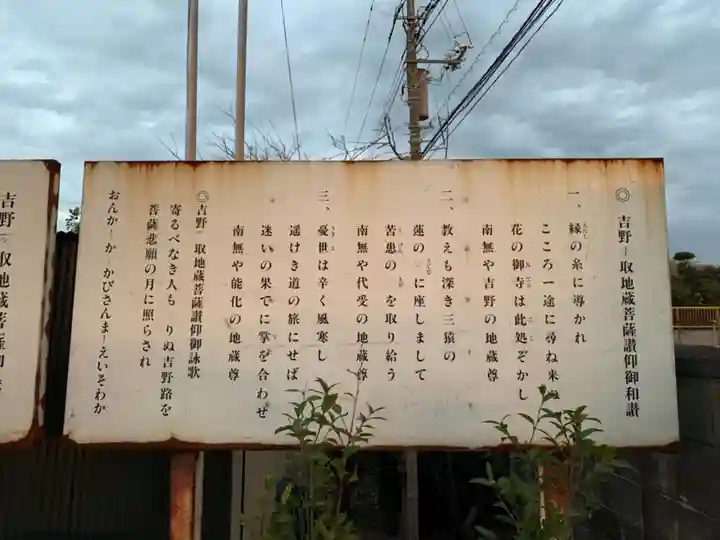 ◎ 吉野 取地蔵菩薩讃仰御和讃
一、縁の糸に導かれ
こころ一途に尋ね来
花の御寺は此処ぞかし
南無や吉野の地蔵尊
二、教えも深き三猿の
蓮の に座しまして
苦患の を取り給う
南無や代受の地蔵尊
三、憂世は辛く風寒し
遥けき道の旅にせば
迷いの果てに掌を合わせ
南無や能化の地蔵尊
◎吉野 取地蔵菩薩讃仰御詠歌
寄るべなき人も りぬ吉野路を
菩薩悲願の月に照らされ
おんか か かびさんまーえいそわか
吉野 取地蔵菩薩